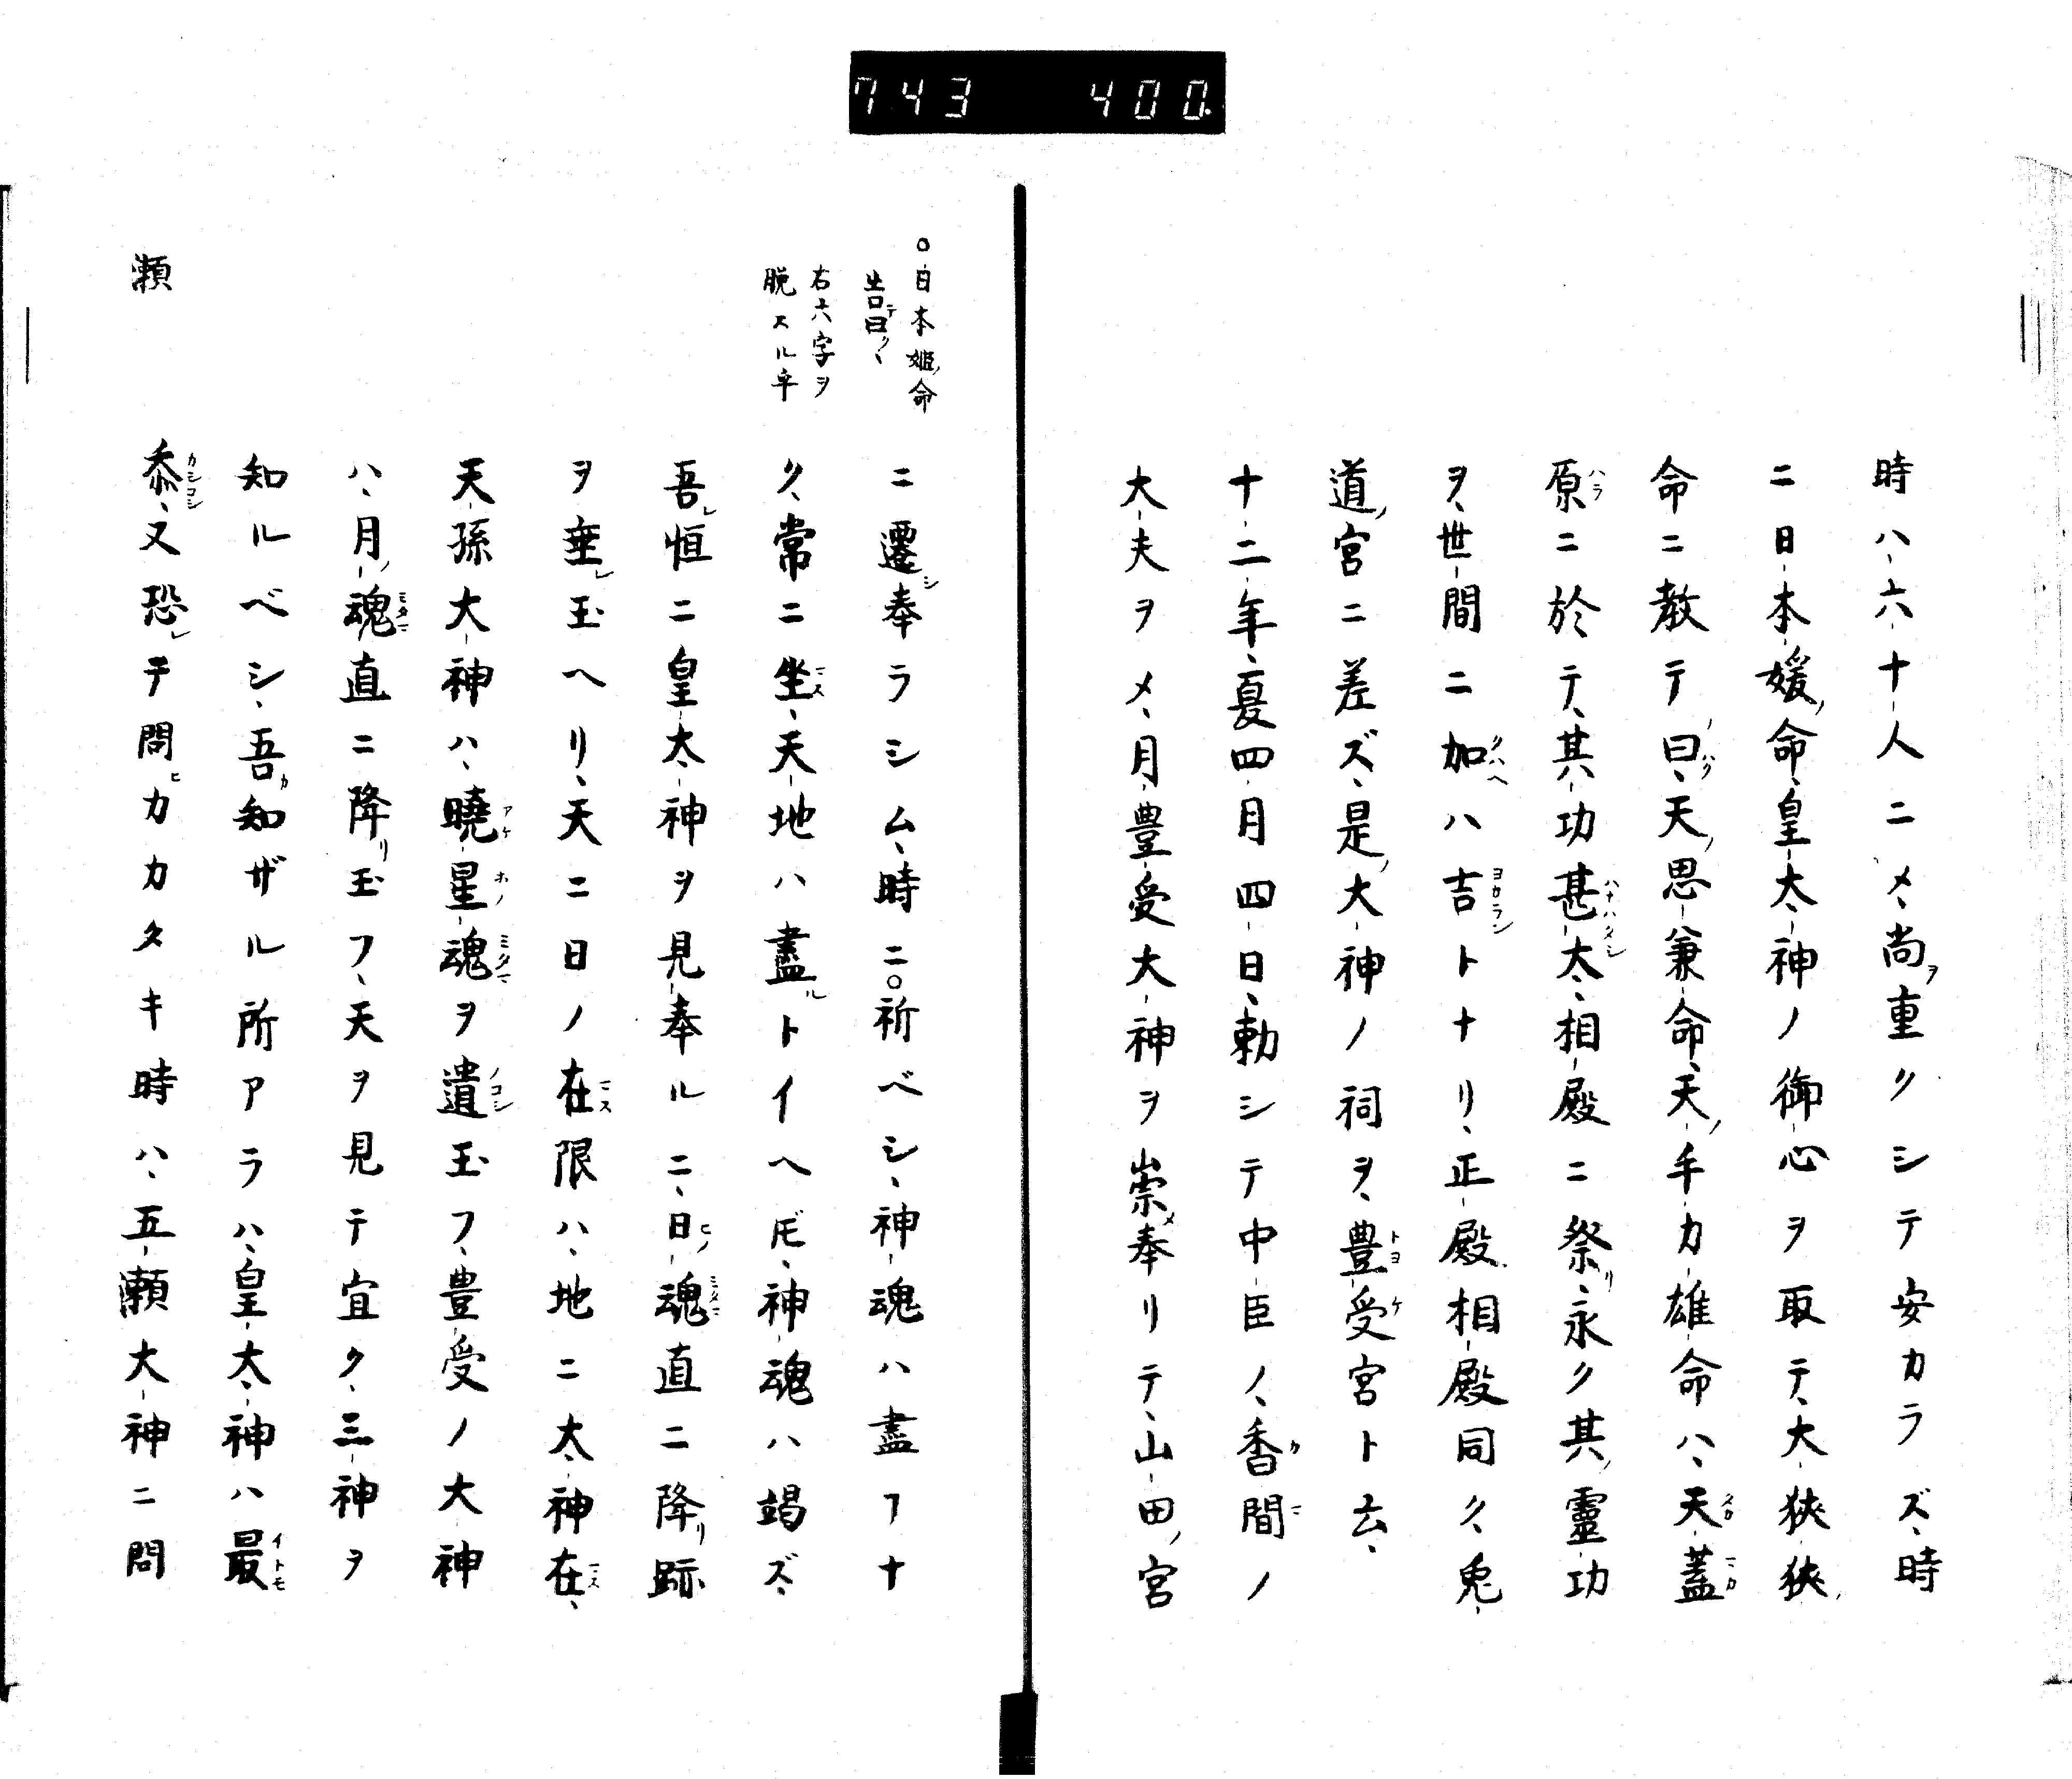 743 400
時ハ六十人ニメ、尚ヲ重クシテ安カラズ、時
ニ日本媛ノ命、皇太神ノ御心ヲ取テ、大狹狹
命ニ教テ曰、天ノ思兼命、天ノ手力雄命ハ、天蓋
原ニ於テ、其功甚太、相殿ニ祭リ、永ク其ノ靈功
ヲ、世間ニ加ハ吉トナリ、正殿相殿同ク、兎
道ノ宮ニ差ズ、是ノ大神ノ祠ヲ、豊受宮ト云、
十二年、夏四月四日、勅シテ中臣ノ、香間ノ
大夫ヲメ、月豊受大神ヲ崇メ奉リテ、山田ノ宮
○日本姫ノ命
告テ曰ク、
右六字ヲ
脱スル乎
ニ遷シ奉ラシム、時ニ○祈ベシ、神魂ハ盡フナ
ク、常ニ坐、天地ハ盡ルトイヘ𪜈、神魂ハ竭ズ、
吾レ恒ニ皇太神ヲ見奉ルニ、日魂直ニ降リ跡
ヲ垂レ玉ヘリ、天ニ日ノ在限ハ、地ニ太神在、
天孫大神ハ、曉星魂ヲ遺玉フ、豊受ノ大神
ハ、月ノ魂直ニ降リ玉フ、天ヲ見テ宜ク、三神ヲ
知ルベシ、吾カ知ザル所アラハ、皇太神ハ最
忝、又恐レテ問ヒカカタキ時ハ、五瀬大神ニ問
瀬